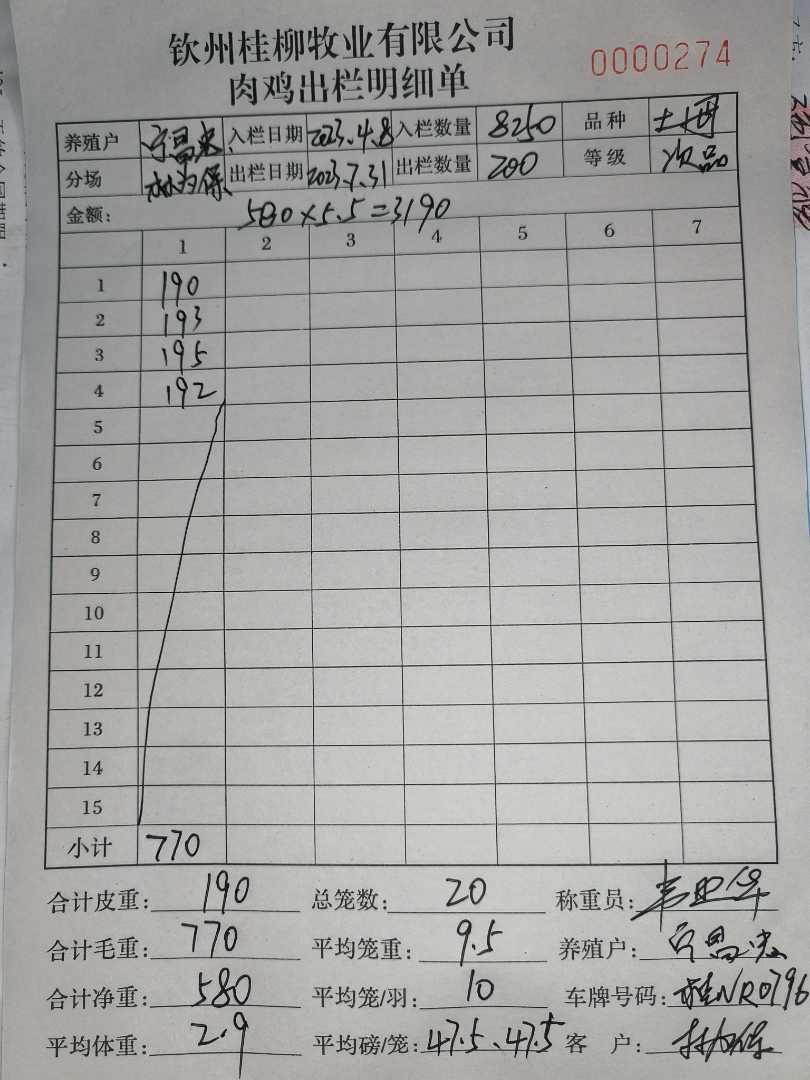 钦州桂柳牧业有限公司
0000274
肉鸡出栏明细单
养殖户 宁昌忠 入栏日期 2023.4.8 入栏数量 8250 品种 土
分场 出栏日期 2023.7.31 出栏数量 200 等级 次品
金额: 580×5.5=3190
1 2 3 4 5 6 7
1 190
2 193
3 195
4 192
5
6
7
8
9
10
11
12
13
14
15
小计 770
合计皮重: 190 总笼数: 20 称重员:
合计毛重: 770 平均笼重: 9.5 养殖户: 宁昌忠
合计净重: 580 平均笼/羽: 10 车牌号码: 桂NR0796
平均体重: 2.9 平均磅/笼: 47.5、47.5 客 户: